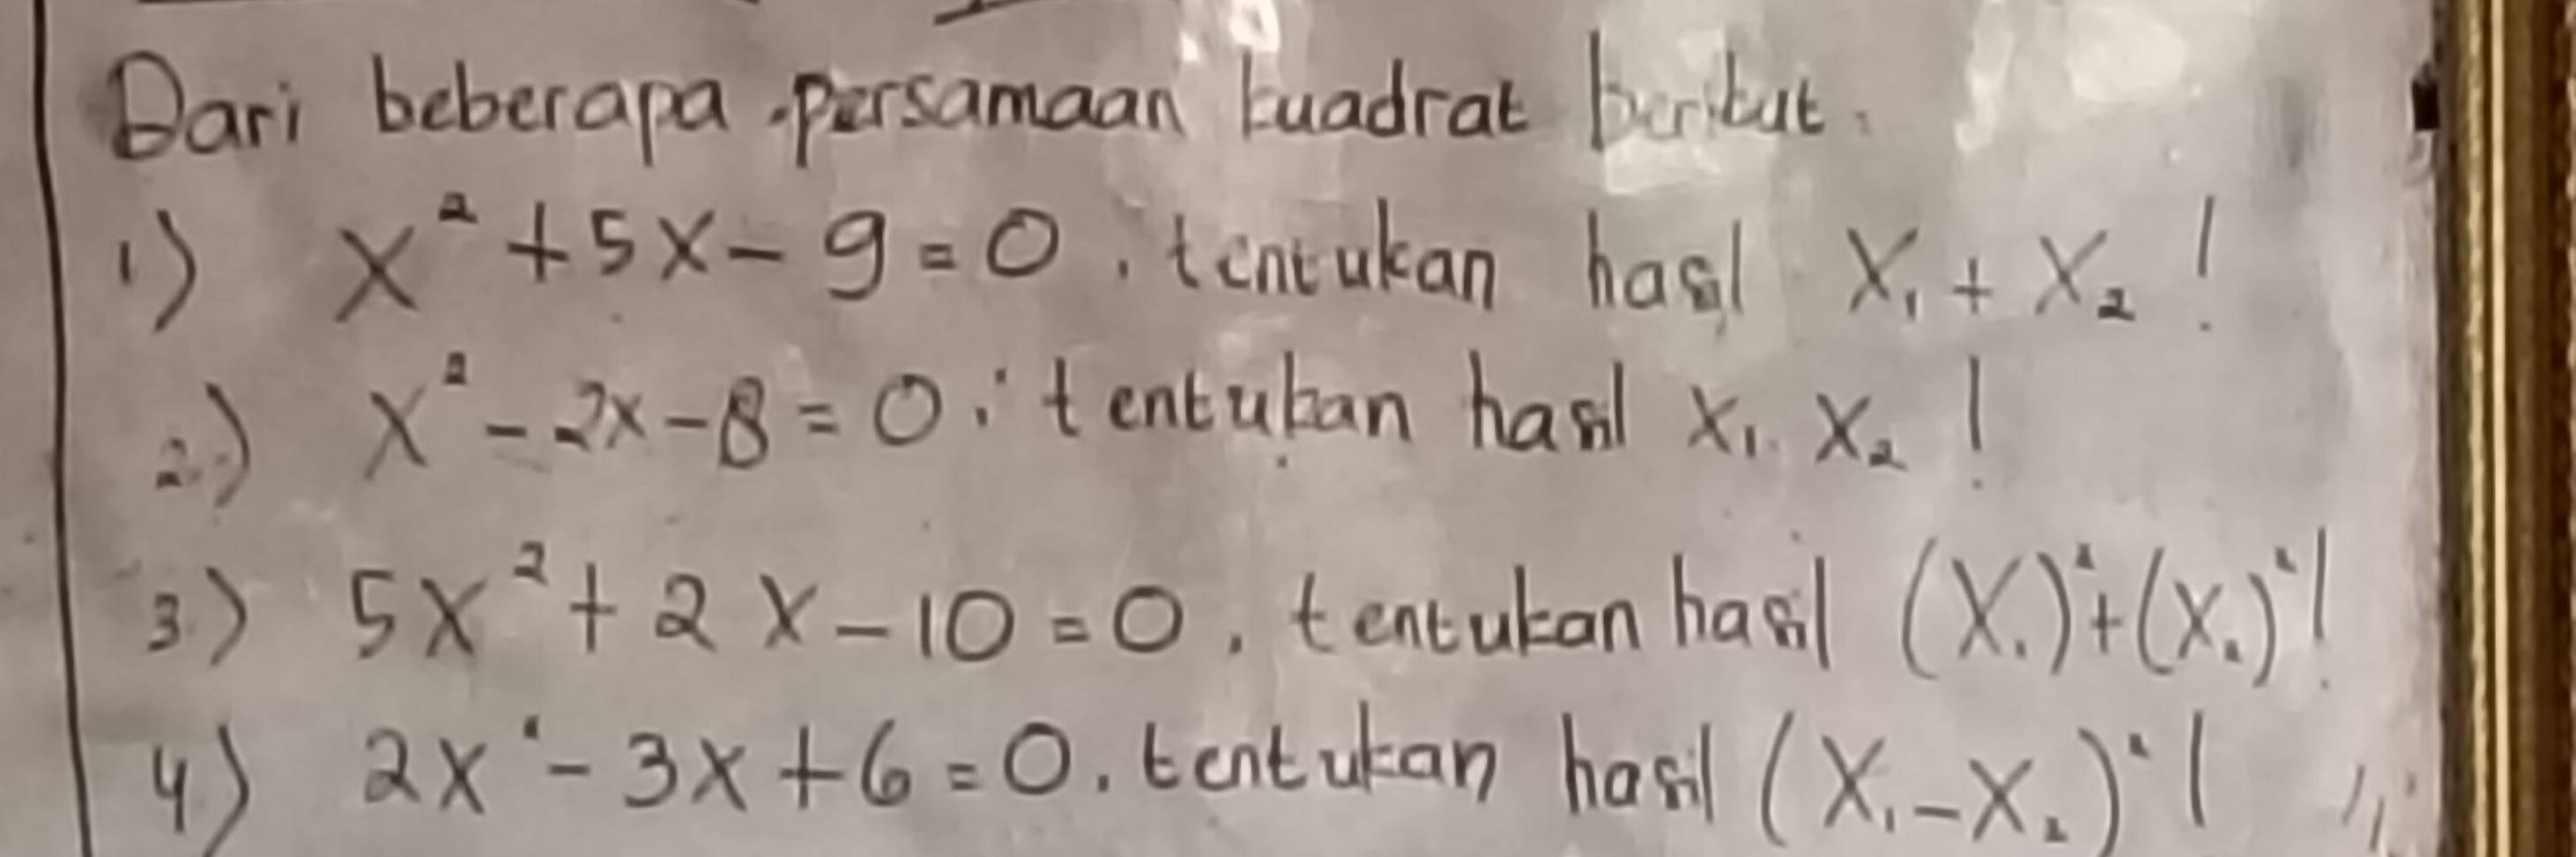 Dari beberapa persamaan kuadrat berikut.
1) x² + 5x - 9 = 0. tentukan hasil x₁ + x₂ !
2.) x² - 2x - 8 = 0. tentukan hasil x₁. x₂ !
3) 5x² + 2x - 10 = 0. tentukan hasil (x₁)² + (x₂)² !
4) 2x² - 3x + 6 = 0. tentukan hasil (x₁ - x₂)² !